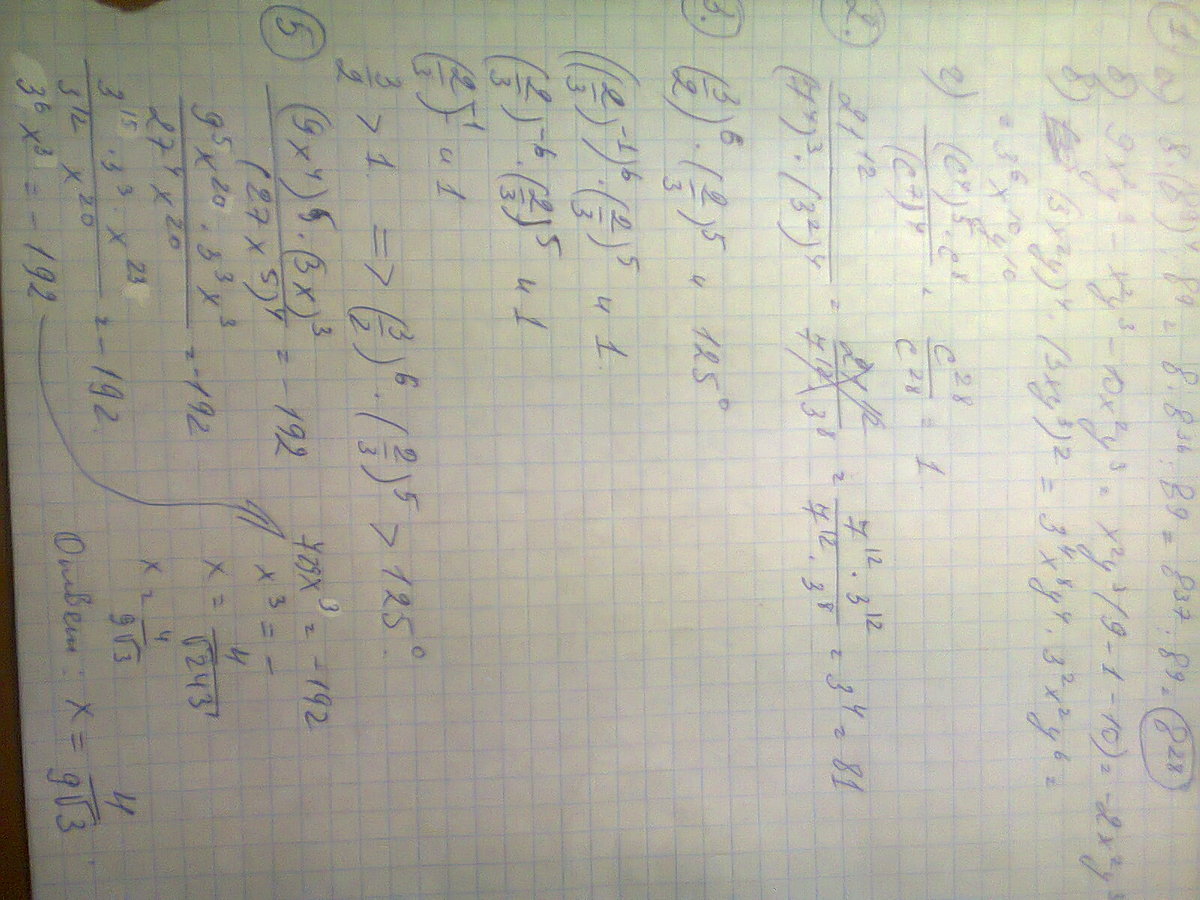 1. а) 8·(8⁹)⁴ : 8⁹ = 8·8³⁶ : 8⁹ = 8³⁷ : 8⁹ = 8²⁸
б) 9x²y³ - x²y³ - 10x²y³ = x²y³(9-1-10) = -2x²y³
в) (3x²y)⁴ · (3xy³)² = 3⁴x⁸y⁴ · 3²x²y⁶ =
= 3⁶x¹⁰y¹⁰
г) (c⁴)⁵·c⁸ / (c⁷)⁴ = c²⁸ / c²⁸ = 1
2. 21¹² / (7⁴)³·(3²)⁴ = 21¹² / 7¹²·3⁸ = 7¹²·3¹² / 7¹²·3⁸ = 3⁴ = 81
3. (3/2)⁶ · (2/3)⁵ и 125⁰
((2/3)⁻¹)⁶ · (2/3)⁵ и 1
(2/3)⁻⁶ · (2/3)⁵ и 1
(2/3)⁻¹ и 1
3/2 > 1 => (3/2)⁶ · (2/3)⁵ > 125⁰.
5 (9x⁴)⁵ · (3x)³ / (27x⁵)⁴ = -192
9⁵x²⁰ · 3³x³ / 27⁴x²⁰ = -192
3¹⁵ · 3³ · x²³ / 3¹² x²⁰ = -192
3⁶x³ = -192
x³ = -
x = 4 / √243
x = 4 / 9√3
Ответ: x = 4 / 9√3